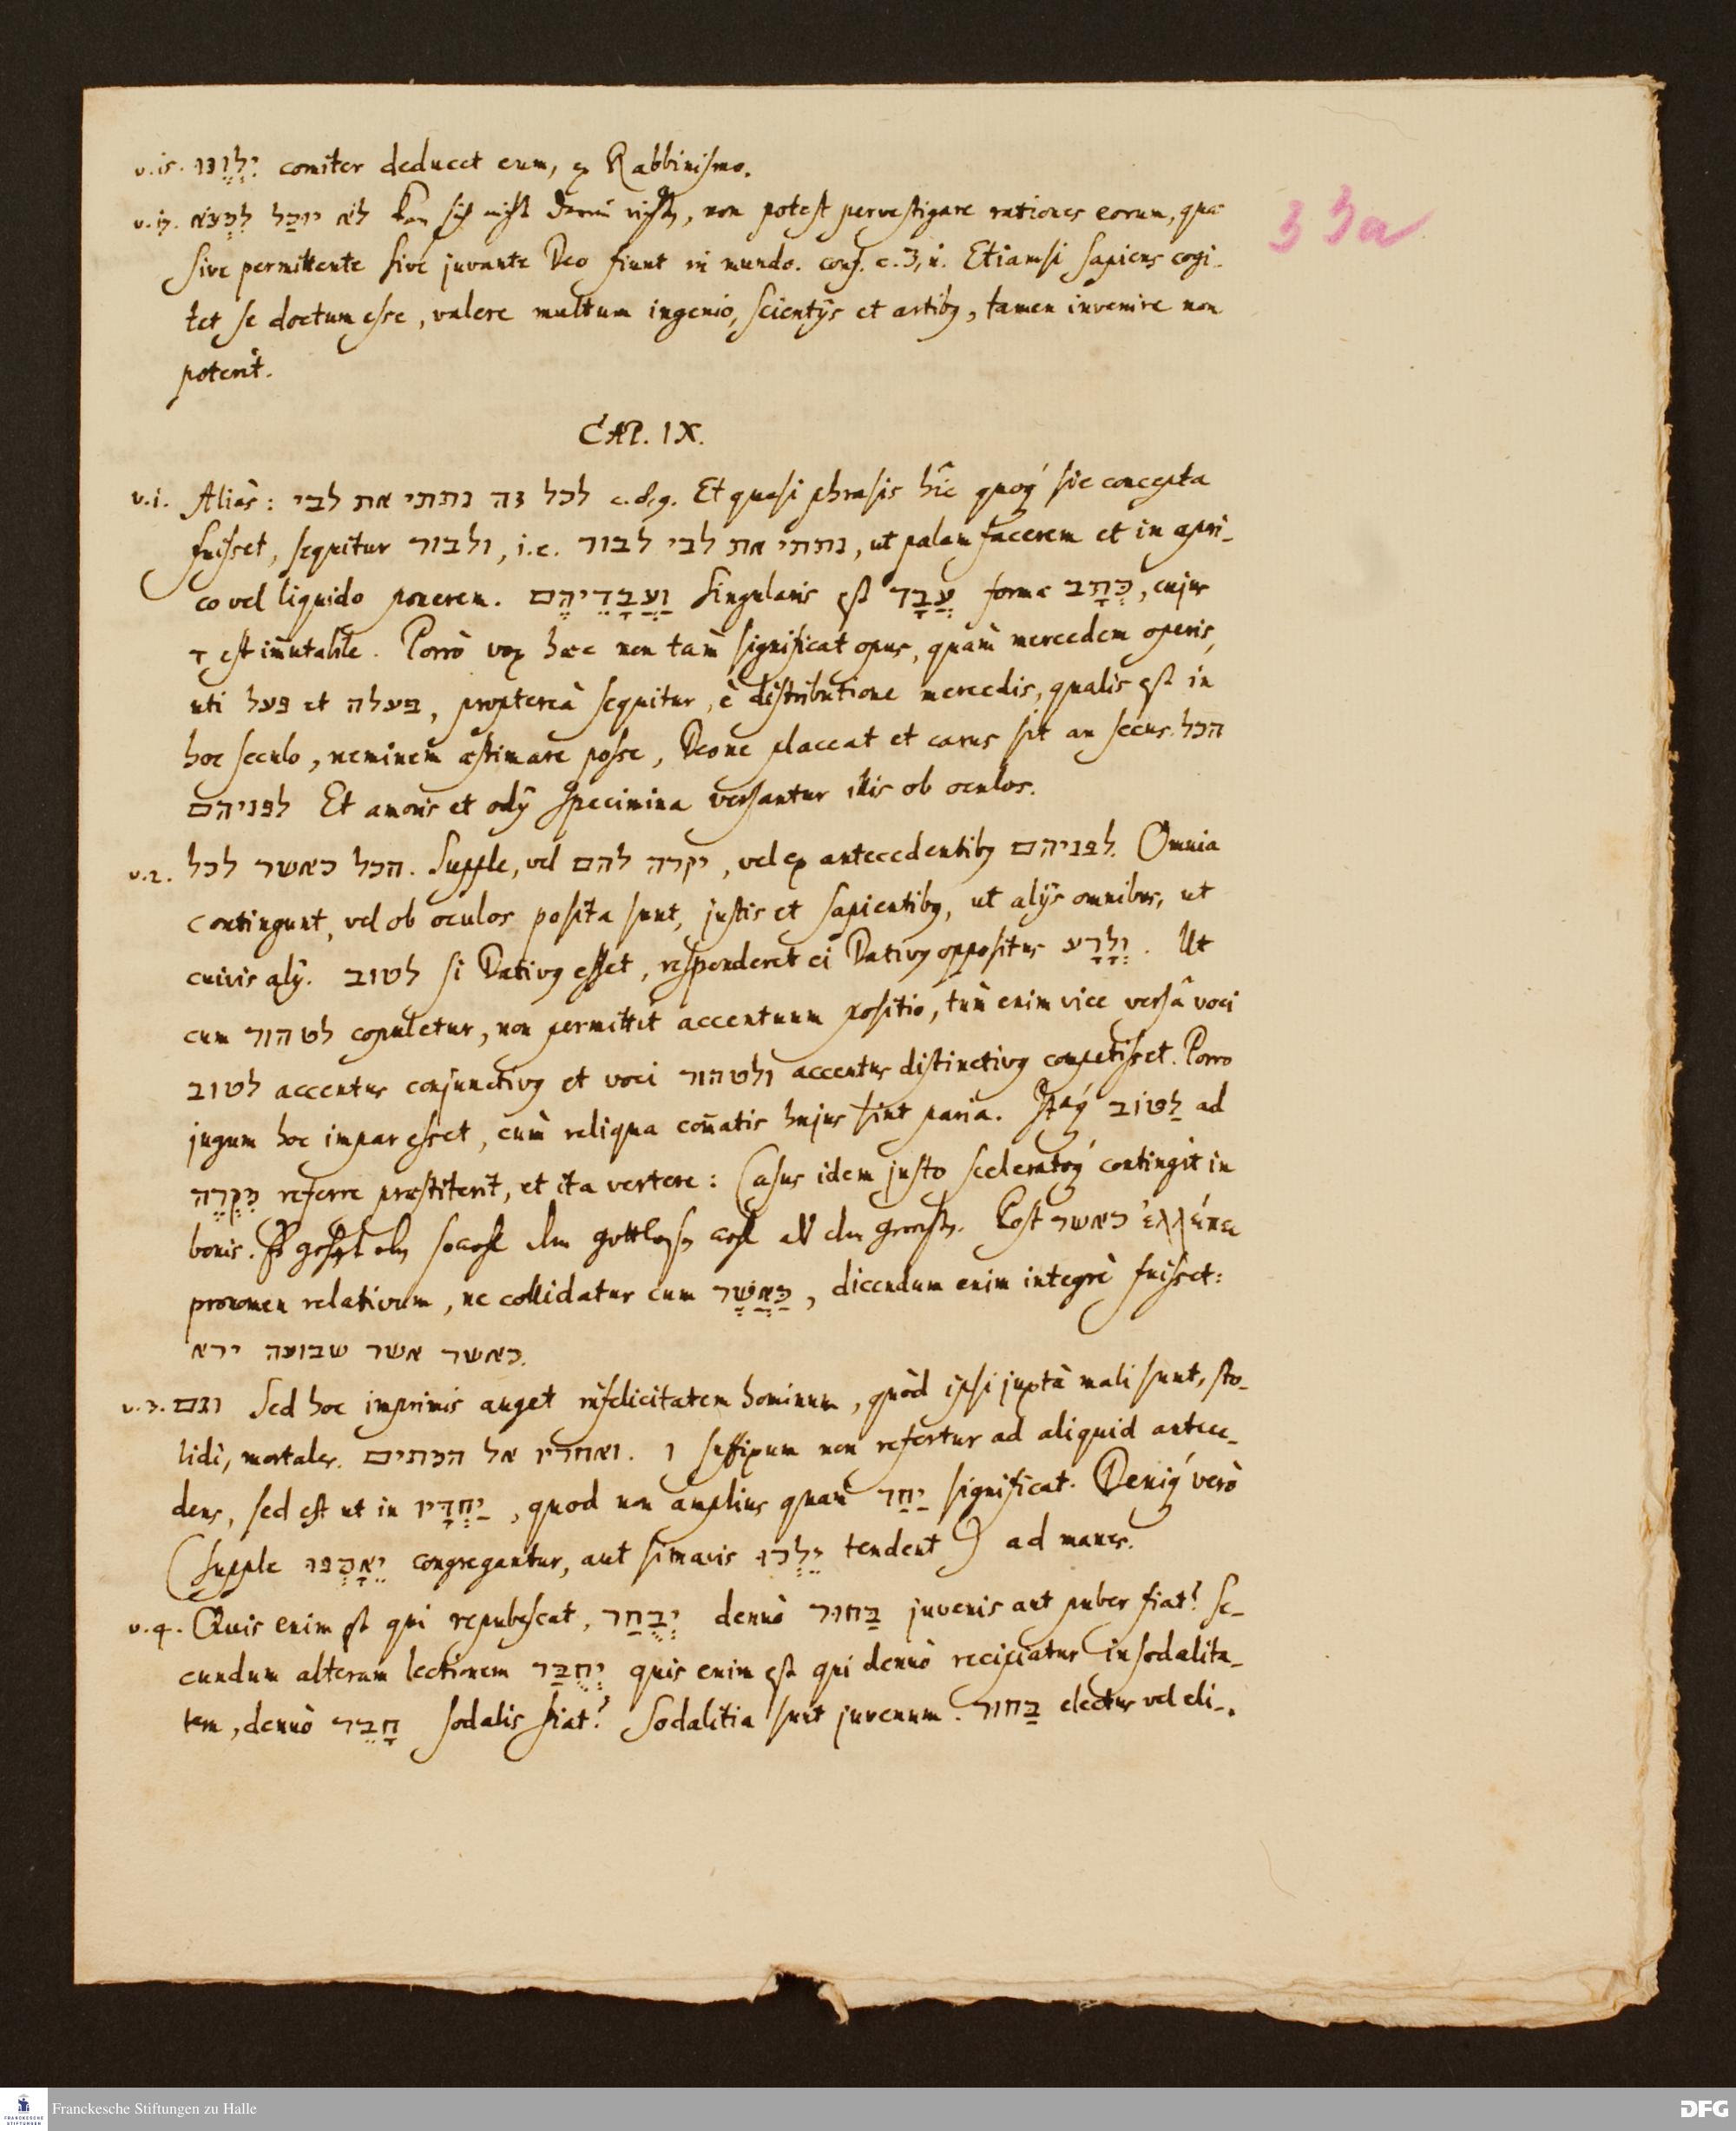 v.15. יִלְוֶנּוּ comiter deducet eum, ex Rabbinismo.
v.17. לא יוכל למצא kan sich nicht darein richten, non potest pervestigare rationes eorum, quæ
sive permittente sive juvante Deo fiunt in mundo. conf. c.3,11. Etiamsi sapiens cogi-
tet se doctum esse, valere multum ingenio, scientijs et artibꝫ, tamen invenire non
poterit.
33a
CAP. IX.
v.1. Aliàs: לכל זה נתתי את לבי Et quasi phrasis hîc quoqꝫ sic concepta
fuisset, sequitur ולבור, i.e. נתתי את לבי לבור, ut palam facerem et in apri-
co vel liquido ponerem. וַעֲבָדֵיהֶם Singularis est עֲבָד forma כְּתָב, cujus
ָ est im̄utabile. Porrò vox hæc non tam significat opus, quàm mercedem operis,
uti פעל et פעלה, proptereà sequitur, è distributione mercedis, qualis est in
hoc seculo, neminem æstimare posse, Deone placeat et carus sit an secus. הכל
לפניהם Et amoris et odij specimina versantur illis ob oculos.
v.2. הכל כאשר לכל. Supple, vel יקרה להם, vel ex antecedentibꝫ לפניהם. Omnia
contingunt, vel ob oculos posita sunt, justis et sapientibꝫ, ut alijs omnibus, ut
cuivis alij. לטוב si Dativꝰ esset, responderet ei Dativꝰ oppositus וְלָרָע. Ut
cum לטהור copuletur, non permittit accentuum positio, tum enim vice versâ voci
לטוב accentus conjunctivꝰ et voci ולטהור accentus distinctivꝰ competisset. Porro
jugum hoc impar esset, cum reliqua com̄atis hujus sint paria. Itaqꝫ לַטּוֹב ad
מִקְרֶה referre præstiterit, et ita vertere: Casus idem justo sceleratoqꝫ contingit in
bonis. Post כאשר ἐλλείπει
pronomen relativum, ne collidatur cum כַּאֲשֶׁר, dicendum enim integrè fuisset:
כאשר אשר שבועה ירא.
v.3. וגם Sed hoc imprimis auget infelicitatem hominum, quòd ipsi juxtà mali sunt, sto-
lidi, mortales. ואחריו אל המתים. ו suffixum non refertur ad aliquid antece-
dens, sed est ut in יַחְדָּיו, quod non amplius quam יַחַד significat. Deniqꝫ verò
(supple יֵאָסְפוּ congregantur, aut si mavis יֵלְכוּ tendent) ad manes.
v.4. Quis enim est qui repubescat, יְבֻחַר denuò בַּחוּר juvenis aut puber fiat? Se-
cundum alteram lectionem יְחֻבַּר quis enim est qui denuò recipiatur in sodalita-
tem, denuò חָבֵר sodalis fiat? Sodalitia sunt juvenum. בַּחוּר electus vel eli-
Franckesche Stiftungen zu Halle
DFG